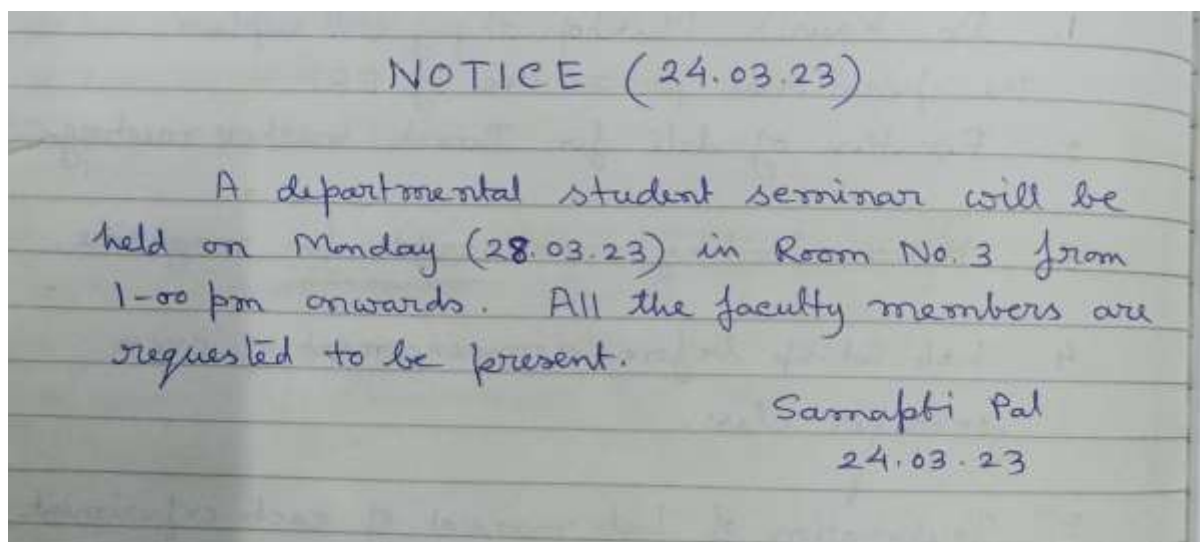 NOTICE (24.03.23)
A departmental student seminar will be
held on Monday (28.03.23) in Room No. 3 from
1-00 pm onwards. All the faculty members are
requested to be present.
Samapti Pal
24.03.23